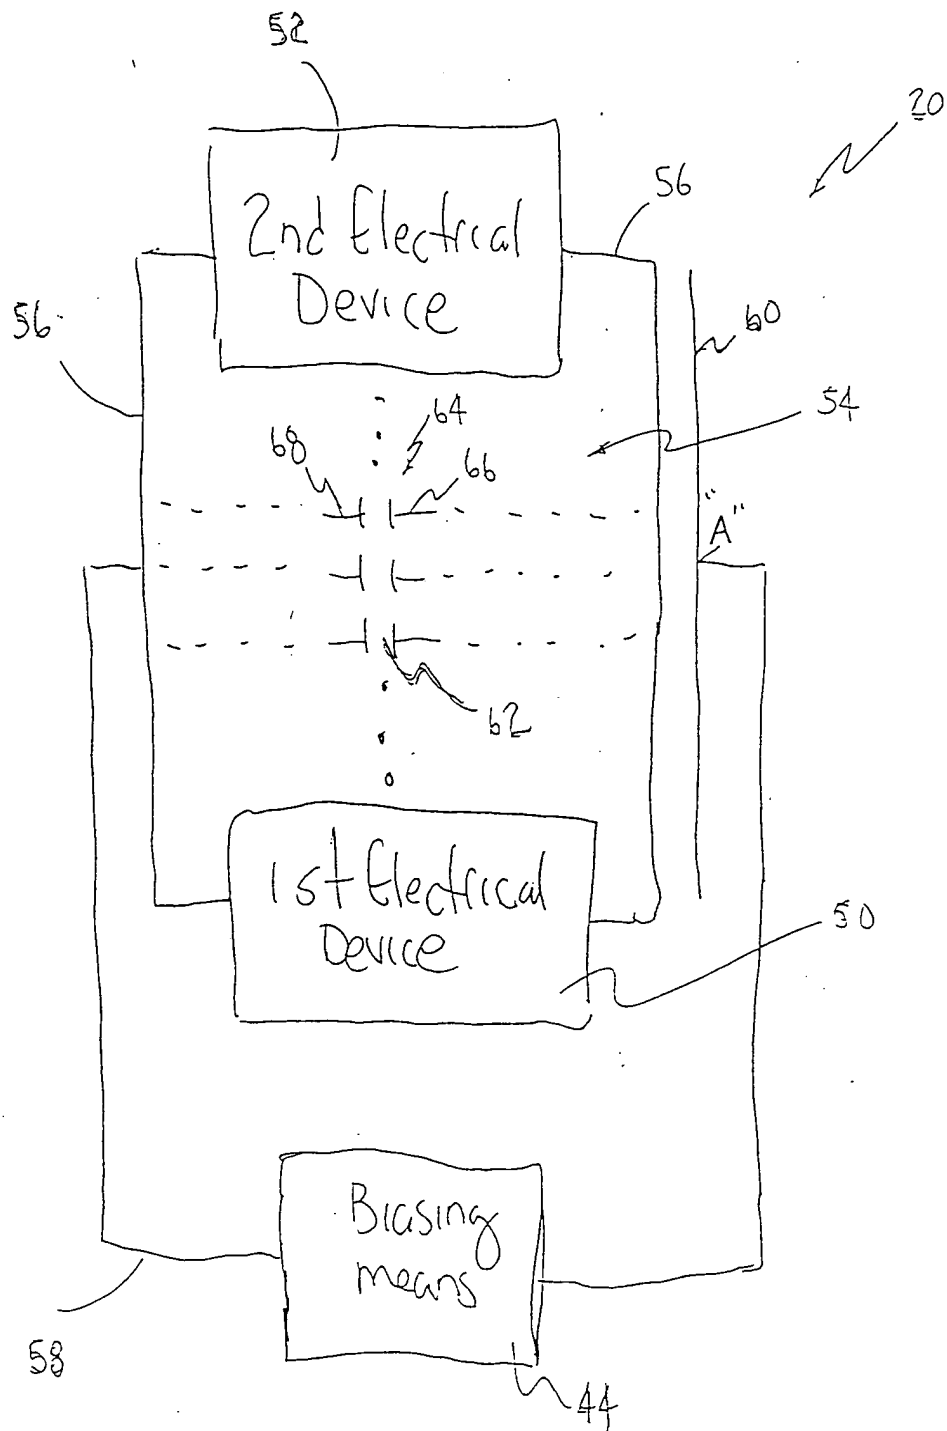 52
20
56
2nd Electrical
Device
56
60
54
64
68
66
"A"
62
1st Electrical
Device
50
Biasing
means
58
44